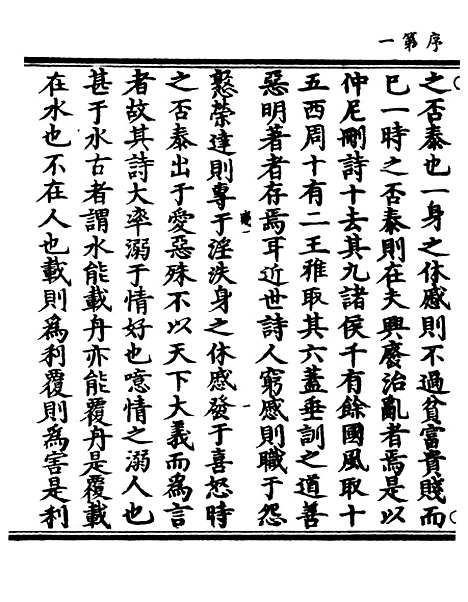 序第一
之否泰也一身之休慼則不過貧富貴賤而
已一時之否泰則在夫興廢治亂者焉是以
仲尼刪詩十去其九諸侯千有餘國風取十
五西周十有二王雅取其六蓋垂訓之道善
惡明著者存焉耳近世詩人窮慼則職于怨
懟榮達則專于淫泆身之休慼發于喜怒時
之否泰出于愛惡殊不以天下大義而為言
者故其詩大率溺于情好也噫情之溺人也
甚于水古者謂水能載舟亦能覆舟是覆載
在水也不在人也載則為利覆則為害是利